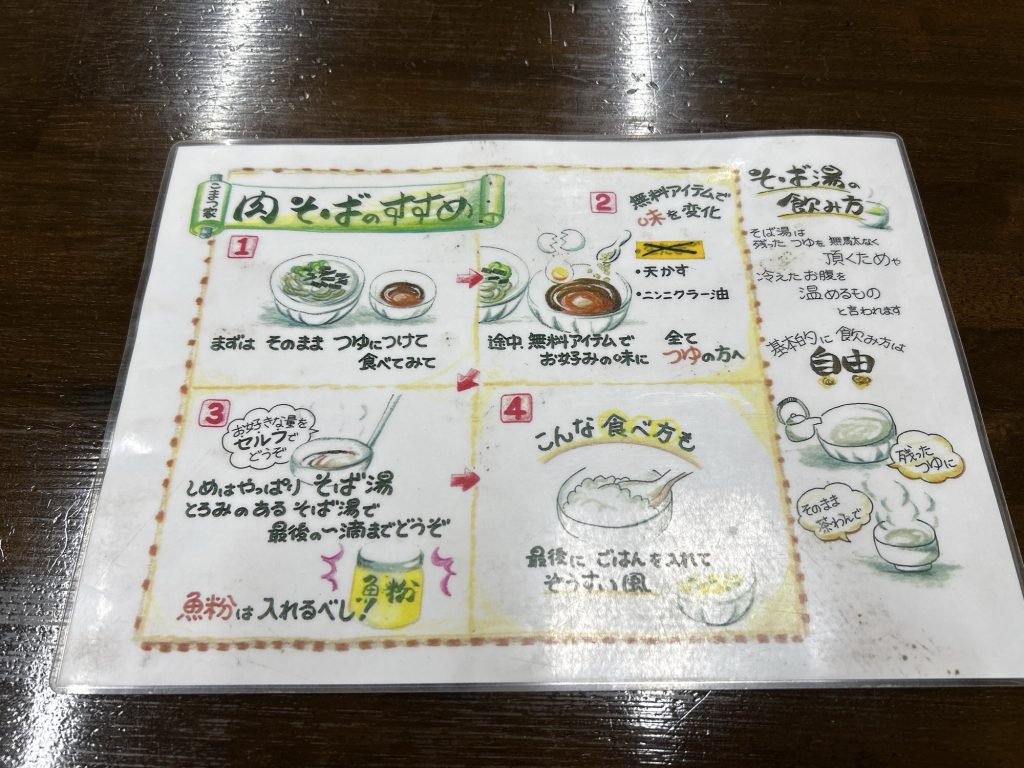 こまつ家
肉そばのすすめ!
1
まずは そのまま つゆにつけて
食べてみて
2
無料アイテムで
味を変化
・天かす
・ニンニクラー油
途中、無料アイテムで
お好みの味に
全て
つゆの方へ
3
お好きな量を
セルフで
どうぞ
しめはやっぱり そば湯
とろみのある そば湯で
最後の一滴までどうぞ
魚粉
魚粉は入れるべし!
4
こんな食べ方も
最後に ごはんを入れて
ぞうすい風
そば湯の
飲み方
そば湯は
残った つゆを 無駄なく
頂くためや
冷えたお腹を
温めるもの
と言われます
基本的に 飲み方は
自由
残った
つゆに
そのまま
茶わんで